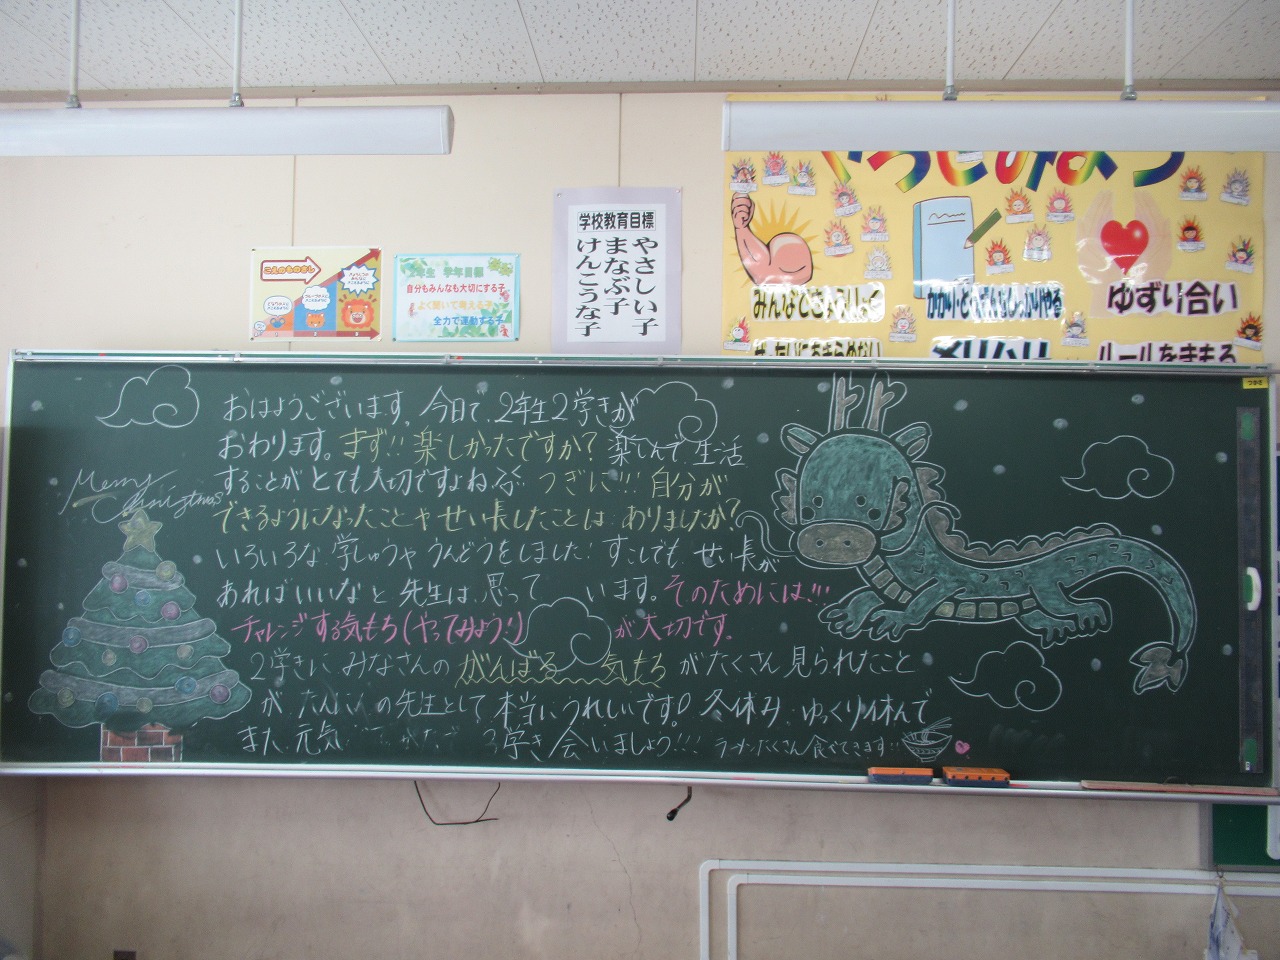 こえのものさし
学年目標
自分もみんなも大切にする子
よく聞いて考える子
全力で運動する子
学校教育目標
やさしい子
まなぶ子
けんこうな子
みんなできょうりょく
ゆずり合い
ルールをまもる
Merry
Christmas
おはようございます。今日で、2年生2学きが
おわります。まず!!楽しかったですか?楽しんで、生活
することがとても大切ですよね。 つぎに!!!自分が
できるようになったことや せい長したことは ありましたか?
いろいろな 学しゅうや うんどうをしました! すこしでも、せい長が
あればいいなと 先生は、思って います。そのためには!!!
チャレンジする気もち(やってみよう!) が大切です。
2学きに みなさんの がんばる 気もち がたくさん見られたこと
が たんにんの先生として 本当にうれしいです! 冬休み、ゆっくり休んで
また、元気 3学き 会いましょう!!! ラーメンたくさん食べてきます!!